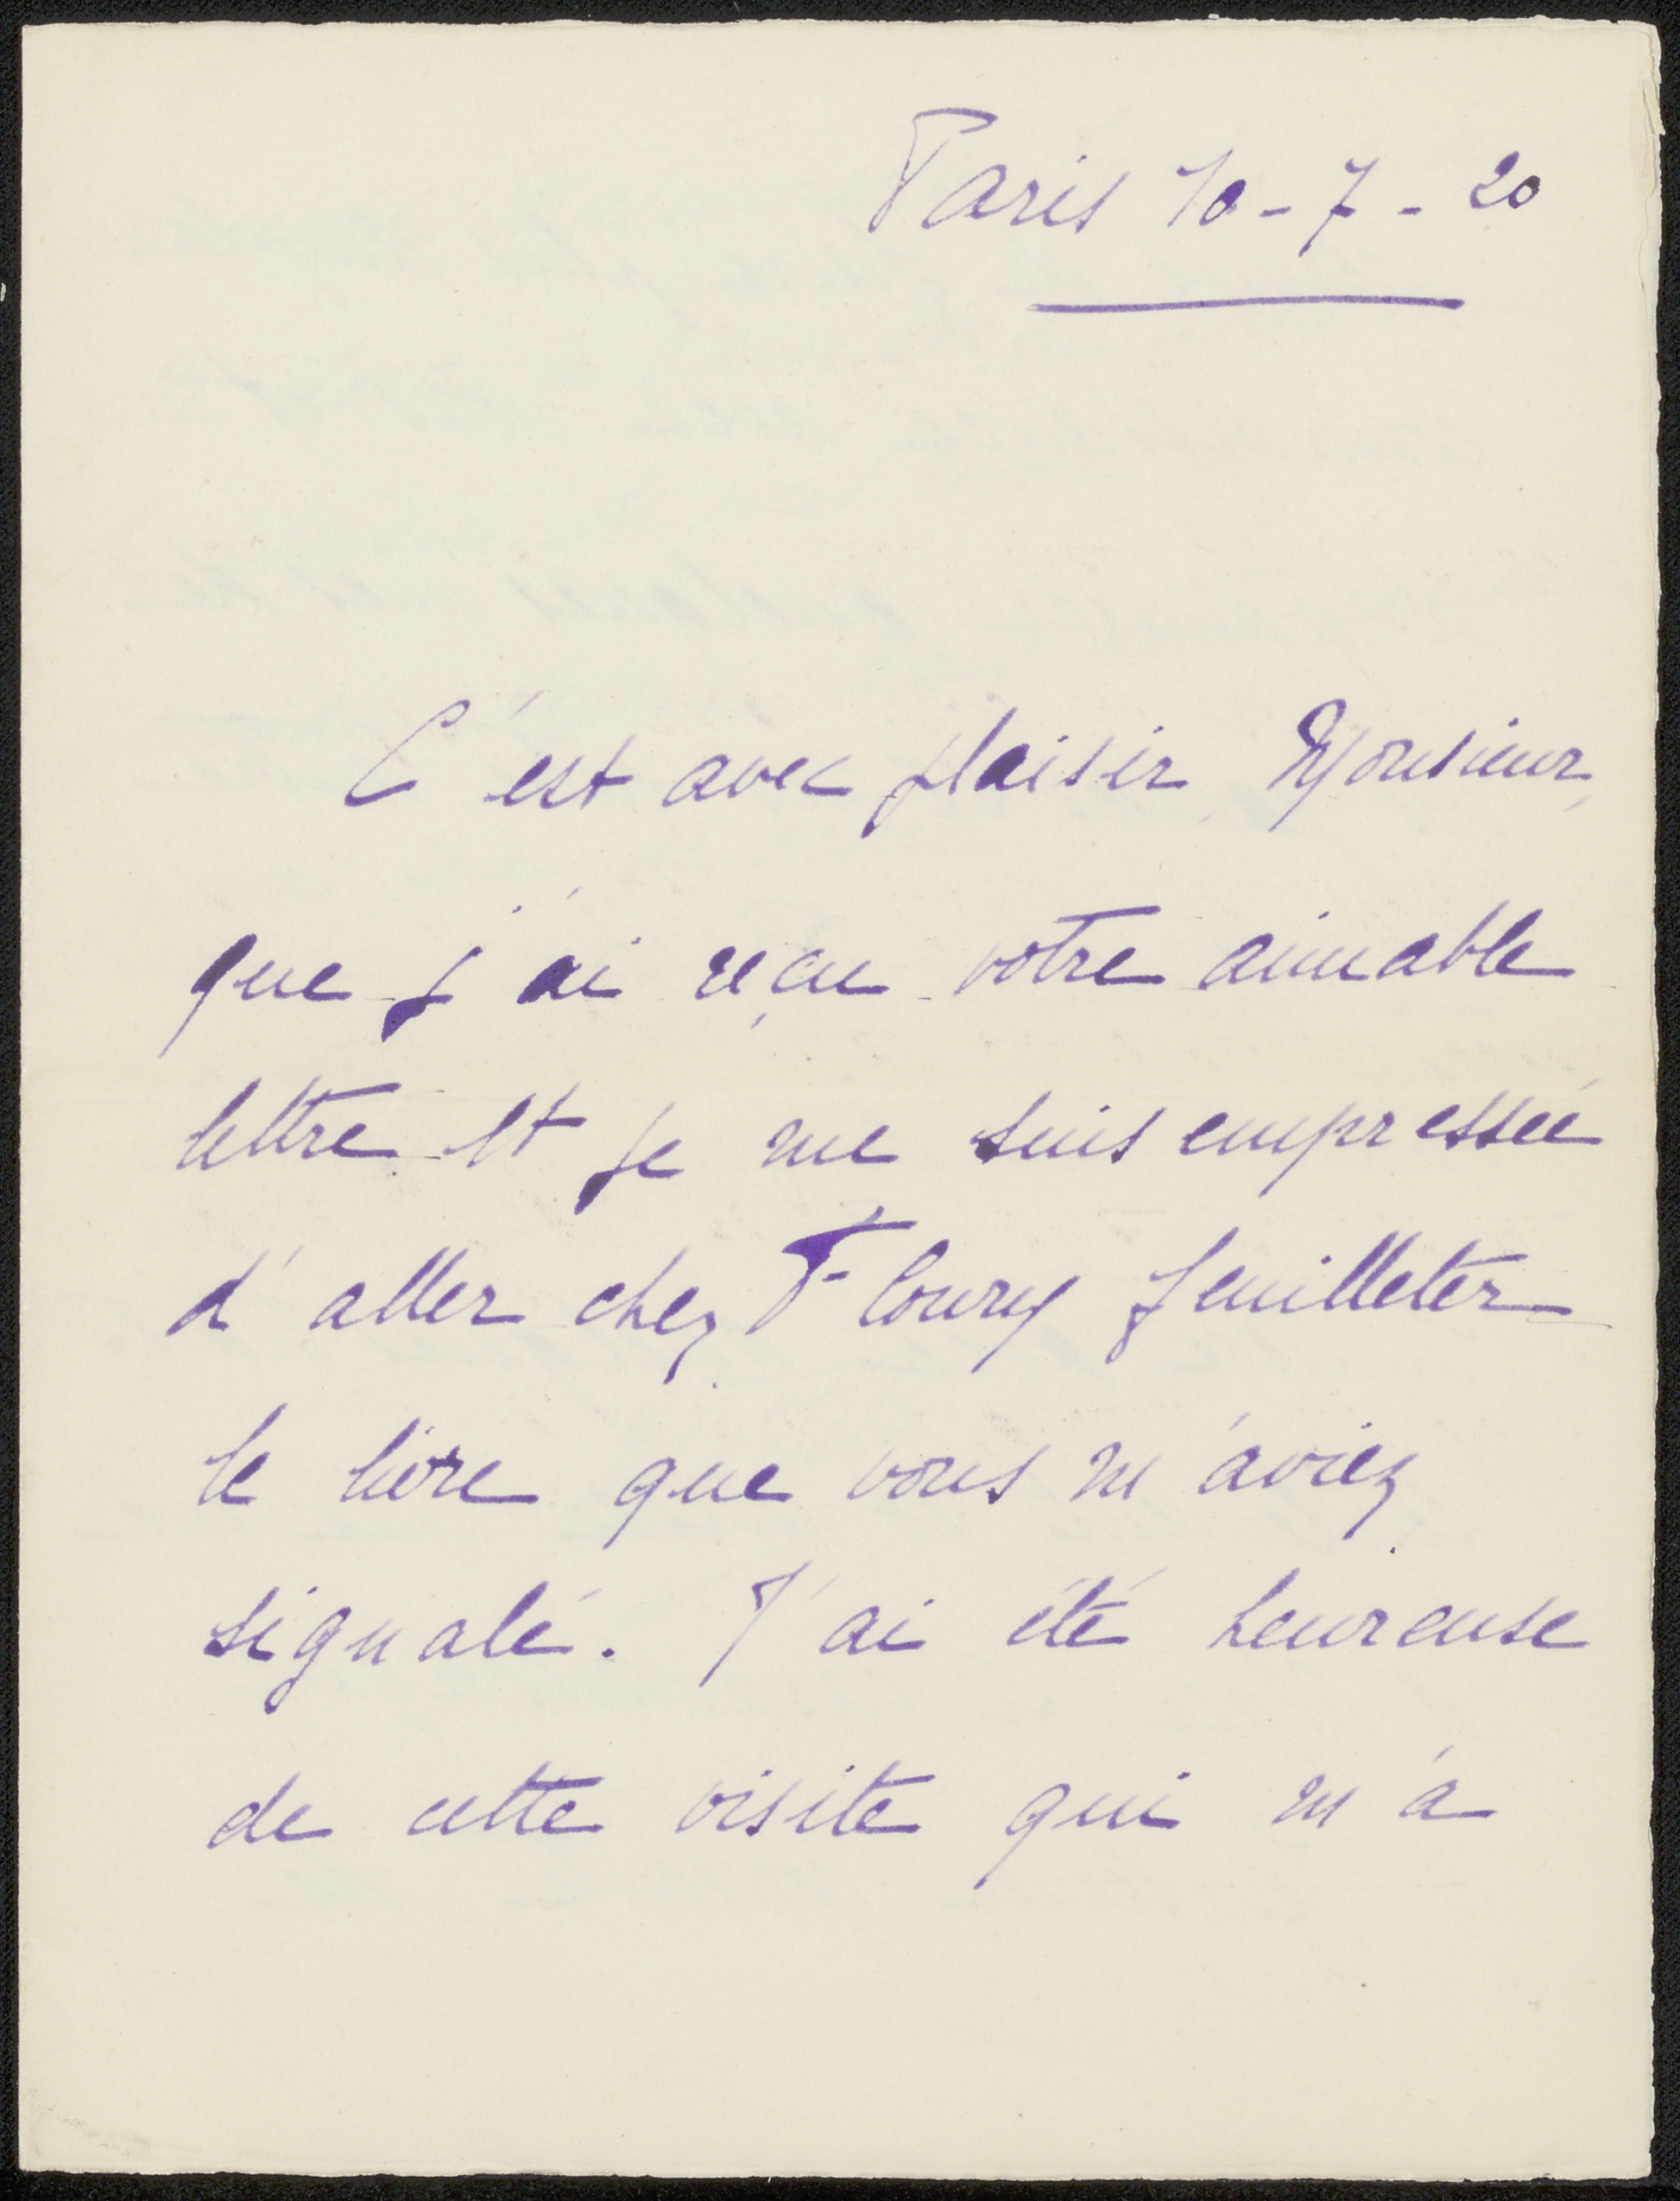 Paris 10-7-20
C'est avec plaisir, Monsieur,
que j'ai reçu votre aimable
lettre et je me suis empressée
d'aller chez Floury feuilleter
le livre que vous m'aviez
signalé. J'ai été heureuse
de cette visite qui m'a